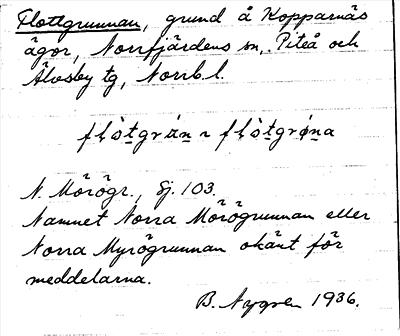 Flottgrunnan, grund å Kopparnäs
ägor, Norrfjärdens sn, Piteå och
Älvsby tg, Norrb. l.
N. Mörögr., Sj. 103.
Namnet Norra Mörögrunnan eller
Norra Myrögrunnan okänt för
meddelarna.
B. Nygren 1936.